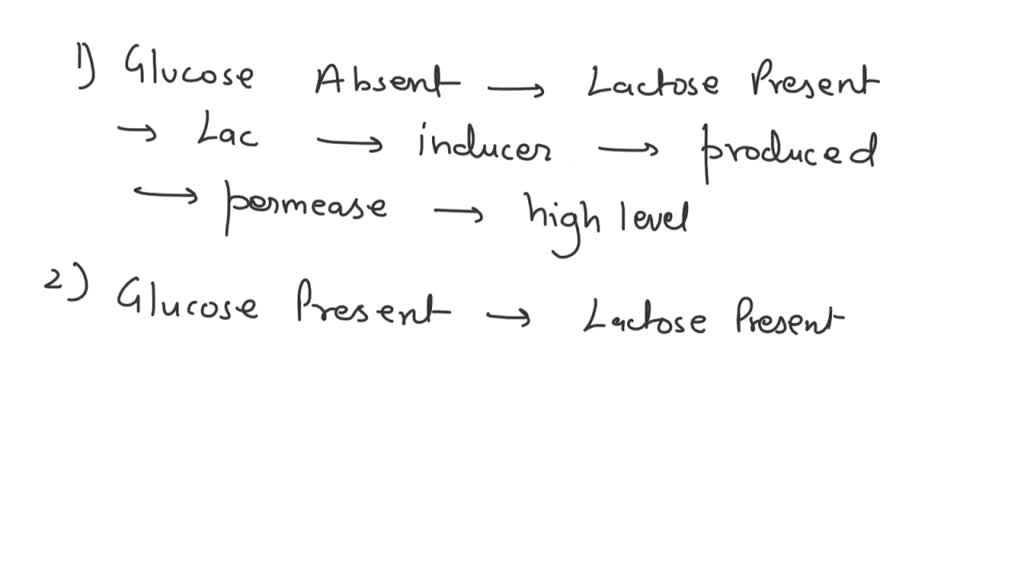 1) Glucose Absent → Lactose Present
→ Lac → inducer → produced
↔ permease → high level
2) Glucose Present → Lactose Present